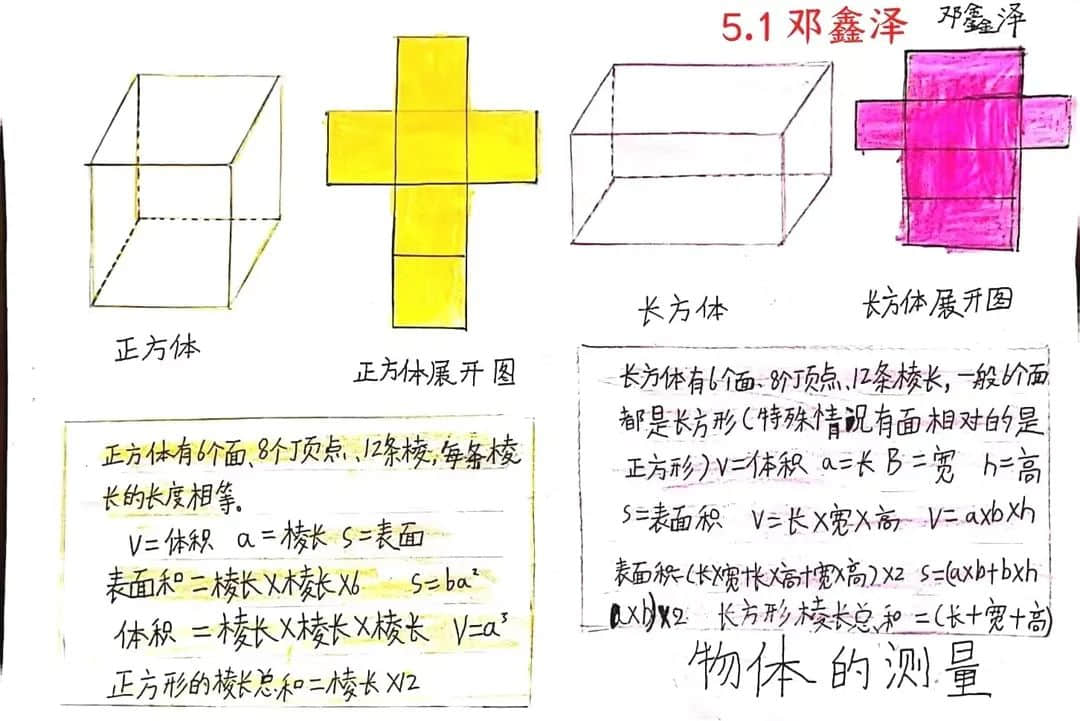 5.1 邓鑫泽
邓鑫泽
正方体
正方体展开图
长方体
长方体展开图
正方体有6个面、8个顶点、12条棱,每条棱
长的长度相等。
V=体积 a=棱长 S=表面
表面积=棱长×棱长×6 S=6a²
体积=棱长×棱长×棱长 V=a³
正方形的棱长总和=棱长×12
长方体有6个面、8个顶点、12条棱长,一般6个面
都是长方形(特殊情况有面相对的是
正方形)V=体积 a=长 B=宽 h=高
S=表面积 V=长×宽×高 V=a×b×h
表面积=(长×宽+长×高+宽×高)×2 S=(a×b+b×h
a×b)×2 长方形棱长总和=(长+宽+高)
物体的测量